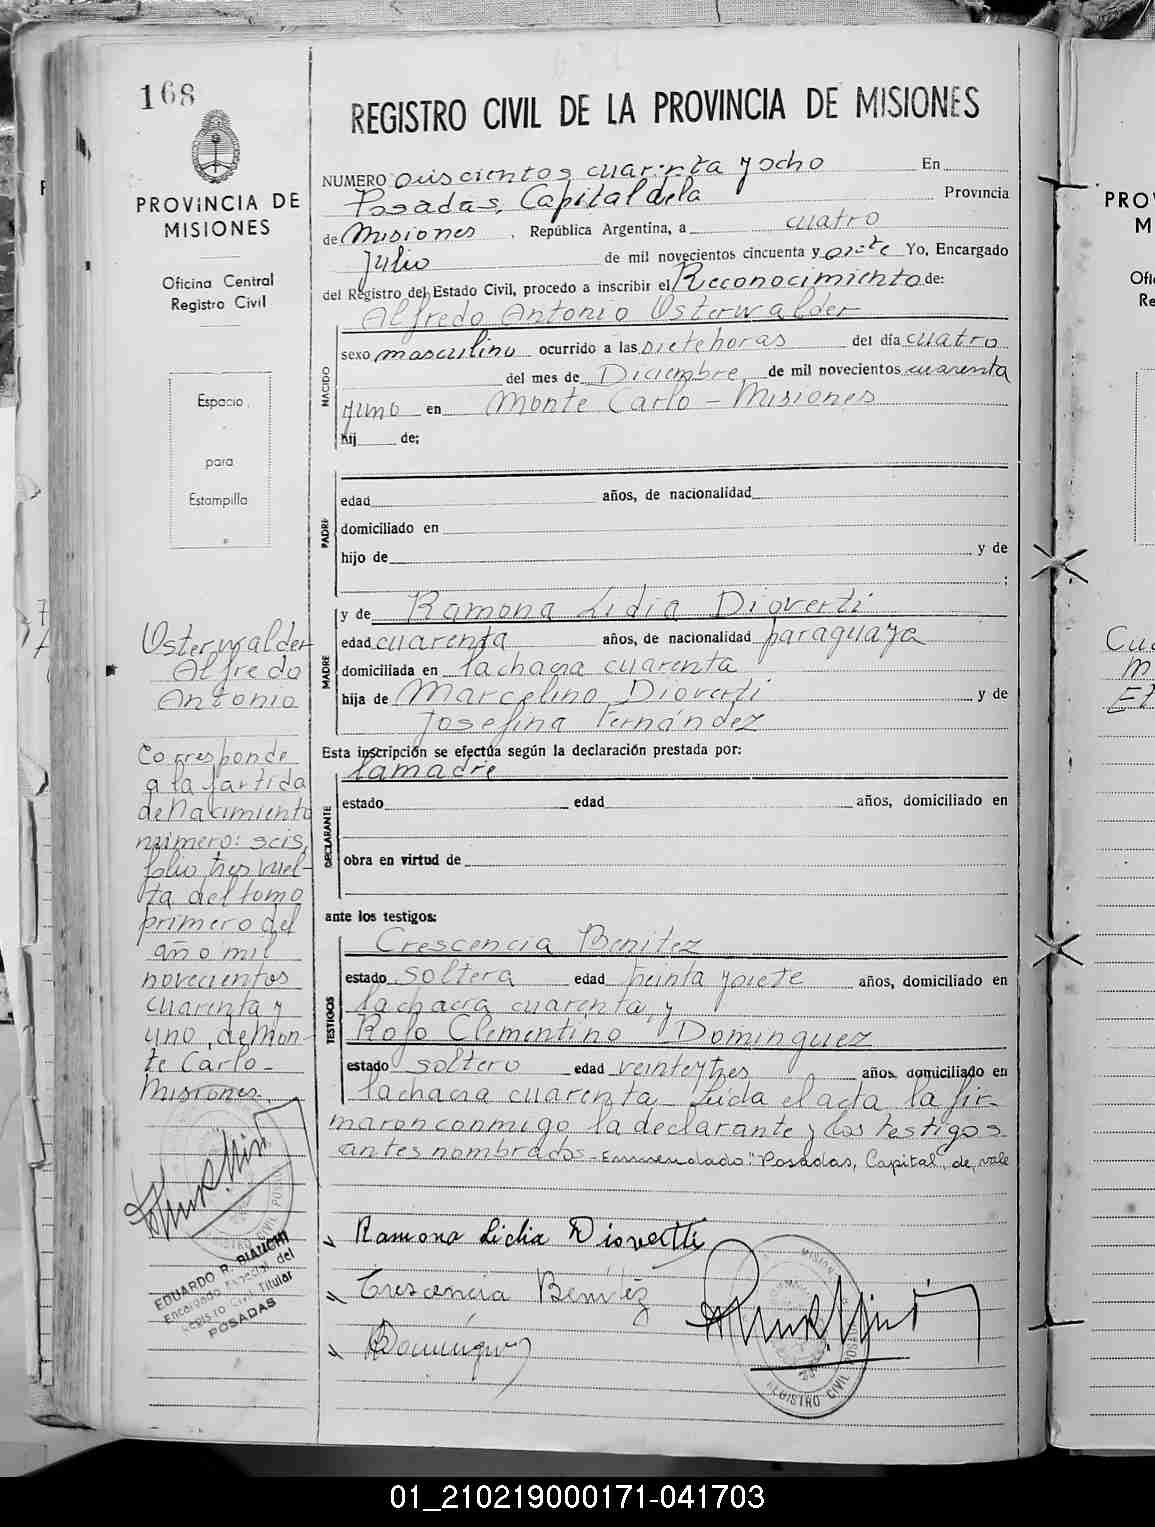 168
PROVINCIA DE
MISIONES
Oficina Central
Registro Civil
Espacio
para
Estampilla
Osterwalder
Alfredo
Antonio
Corresponde
a la partida
de Nacimiento
número: seis,
folio tres vuel-
ta del tomo
primero del
año mil
novecientos
cuarenta y
uno, de Mon-
te Carlo-
Misiones.
EDUARDO R. BIANCHI
Encargado Especial del
Registro Civil Titular
POSADAS
REGISTRO CIVIL DE LA PROVINCIA DE MISIONES
NUMERO Doiscientos cuarenta y ocho En
Posadas, Capital de la Provincia
de Misiones , República Argentina, a cuatro
Julio de mil novecientos cincuenta y siete Yo, Encargado
del Registro del Estado Civil, procedo a inscribir el Reconocimiento de:
Alfredo Antonio Osterwalder
NACIDO
sexo masculino ocurrido a las siete horas del día cuatro
del mes de Diciembre de mil novecientos cuarenta
y uno en Monte Carlo - Misiones
hij de:
PADRE
edad años, de nacionalidad
domiciliado en
hijo de y de
;
MADRE
y de Ramona Lidia Dioverti
edad cuarenta años, de nacionalidad paraguaya
domiciliada en la chacra cuarenta
hija de Marcelino Dioverti y de
Josefina Fernández
Esta inscripción se efectúa según la declaración prestada por:
la madre
DECLARANTE
estado edad años, domiciliado en
obra en virtud de
ante los testigos:
TESTIGOS
Crescencia Benitez
estado soltera edad treinta y siete años, domiciliado en
la chacra cuarenta, y
Rojo Clementino Dominguez
estado soltero edad veinte y tres años, domiciliado en
la chacra cuarenta Leida el acta la fir-
maron conmigo la declarante y los testigos
antes nombrados.- Enmendado: "Posadas, Capital", de, vale
Ramona Lidia Diovertti
Crescencia Benitez
Dominguez
REGISTRO CIVIL
PROV
M
Ofic
Re
01_210219000171-041703